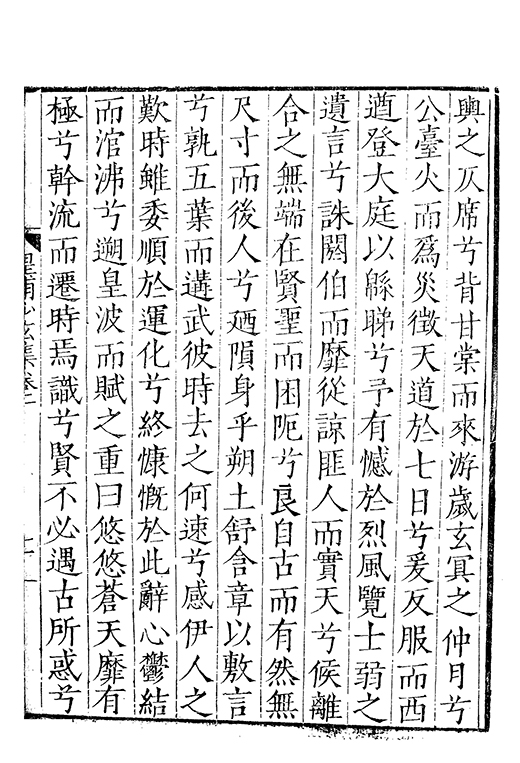 輿之仄席兮背甘棠而來游歲玄冥之仲月兮
公臺火而爲災徵天道於七日兮爰反服而西
遒登大庭以緜睇兮予有憾於烈風覽士弱之
遺言兮誅閼伯而靡從諒匪人而實天兮候離
合之無端在賢聖而困阨兮良自古而有然無
尺寸而後人兮廼隕身乎朔土舒含章以敷言
兮孰五葉而遘武彼時去之何速兮感伊人之
歎時雖委順於運化兮終慷慨於此辭心鬱結
而涫沸兮遡皇波而賦之重曰悠悠蒼天靡有
極兮幹流而遷時焉識兮賢不必遇古所惑兮
皇甫少玄集卷二